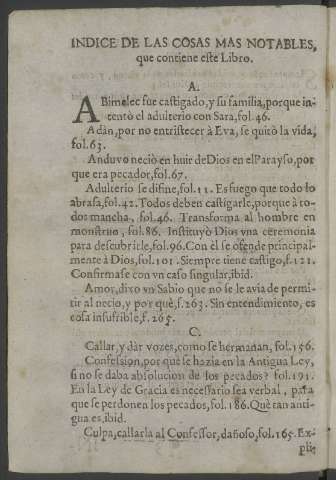 INDICE DE LAS COSAS MAS NOTABLES,
que contiene este Libro.
A.
ABimelec fue castigado, y su familia, porque in-
tentò el adulterio con Sara, fol. 46.
Adàn, por no entristecer à Eva, se quitò la vida,
fol. 63.
Anduvo neciò en huir de Dios en el Parayso, por
que era pecador, fol. 67.
Adulterio se difine, fol. 11. Es fuego que todo lo
abrasa, fol. 42. Todos deben castigarle, porque à to-
dos mancha, fol. 46. Transforma al hombre en
monstruo, fol. 86. Instituyò Dios vna ceremonia
para descubrirle, fol. 96. Con èl se ofende principal-
mente à Dios, fol. 101. Siempre tiene castigo, f. 121.
Confirmase con vn caso singular, ibid.
Amor, dixo vn Sabio que no se le avia de permi-
tir al necio, y por què, f. 263. Sin entendimiento, es
cosa insufrible, f. 265.
C.
Callar, y dàr vozes, como se hermanan, fol. 156.
Confession, por què se hazia en la Antigua Ley,
si no se daba absolucion de los pecados? fol. 191.
En la Ley de Gracia es necessario sea verbal, para
que se perdonen los pecados, fol. 186. Què tan anti-
gua es, ibid.
Culpa, callarla al Confessor, dañoso, fol. 165. Ex-
pli-